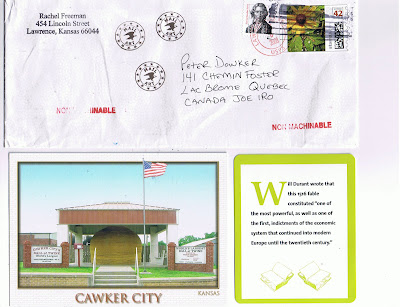 Rachel Freeman
454 Lincoln Street
Lawrence, Kansas 66044
42
PETER DOWKER
141 CHEMIN FOSTER
LAC BROME QUEBEC
CANADA JOE IRO
NON MACHINABLE
NON MACHINABLE
Will Durant wrote that
this 1516 fable
constituted "one of
the most powerful, as well as one of
first, indictments of the economic
system that continued into modern
Europe until the twentieth century."
CAWKER CITY
KANSAS